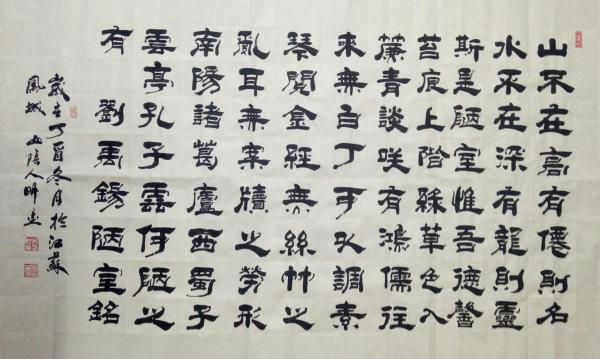 山不在高有僊則名
水不在深有龍則靈
斯是陋室惟吾德馨
苔痕上階綠草色入
簾青談咲有鴻儒往
來無白丁可以調素
琴閱金經無絲竹之
亂耳無案牘之勞形
南陽諸葛廬西蜀子
雲亭孔子雲何陋之
有 劉禹錫陋室銘
歲在丁酉冬月於江蘇
鳳城 山陰人